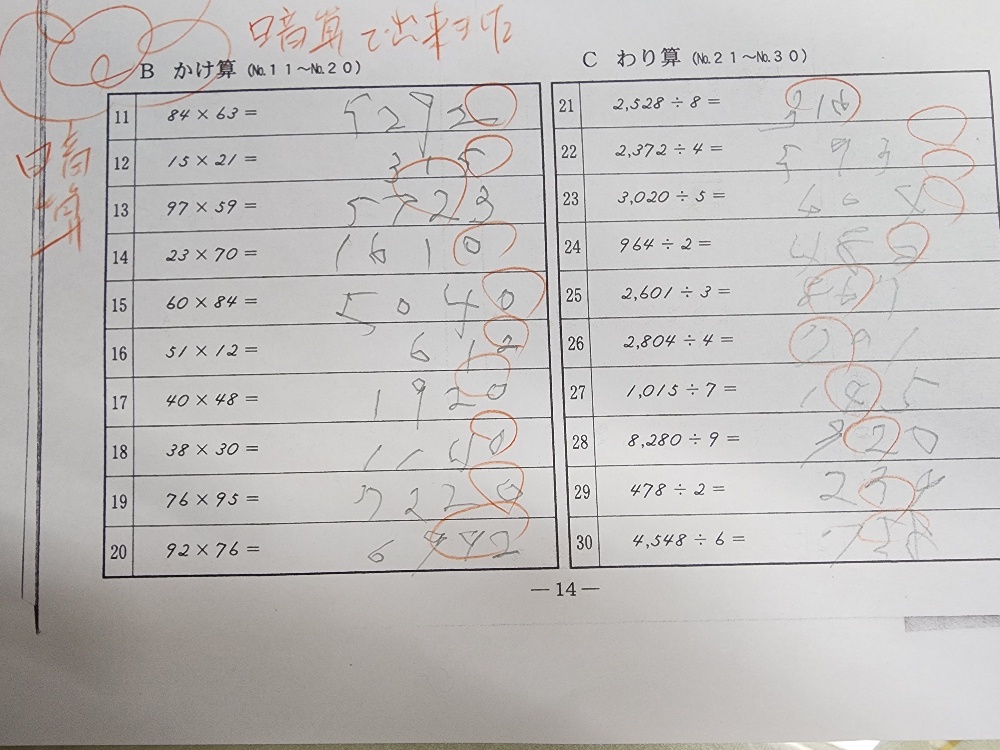 暗算で出来ました
暗算
B かけ算 (№11～№20)
11 84×63= 5292
12 15×21= 315
13 97×59= 5723
14 23×70= 1610
15 60×84= 5040
16 51×12= 612
17 40×48= 1920
18 38×30= 1140
19 76×95= 7220
20 92×76= 6992
C わり算 (№21～№30)
21 2,528÷8= 316
22 2,372÷4= 593
23 3,020÷5= 604
24 964÷2= 482
25 2,601÷3= 867
26 2,804÷4= 701
27 1,015÷7= 145
28 8,280÷9= 920
29 478÷2= 239
30 4,548÷6= 758
— 14 —